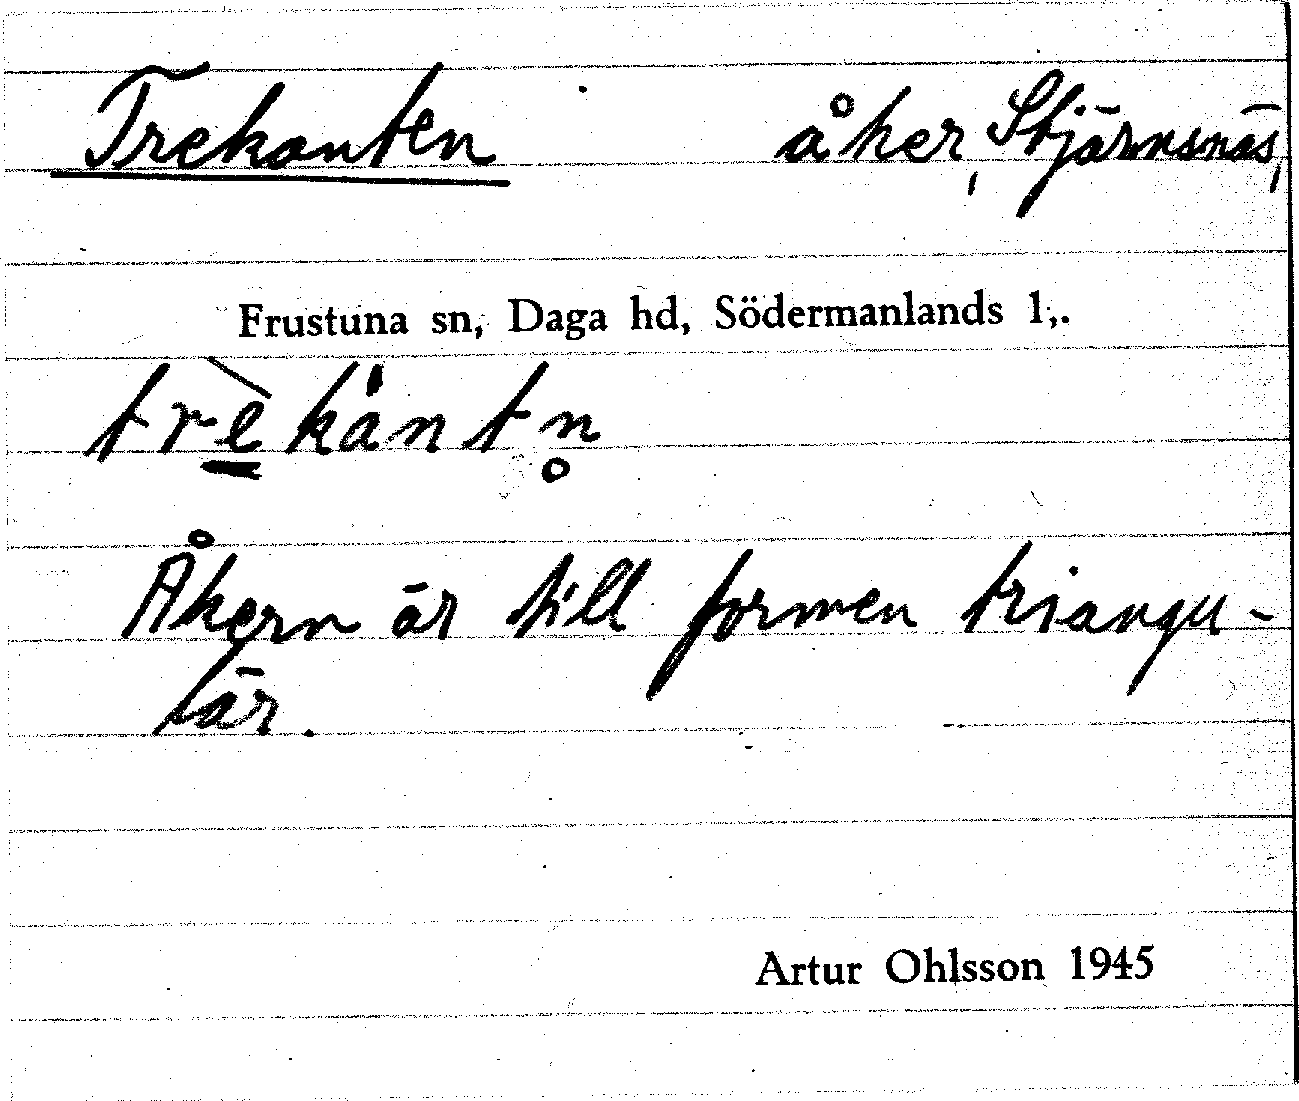 Trekanten åker, Stjärnsnäs,
Frustuna sn, Daga hd, Södermanlands l,.
trè̱kȧntn̥
Åkern är till formen triangu-
lär.
Artur Ohlsson 1945